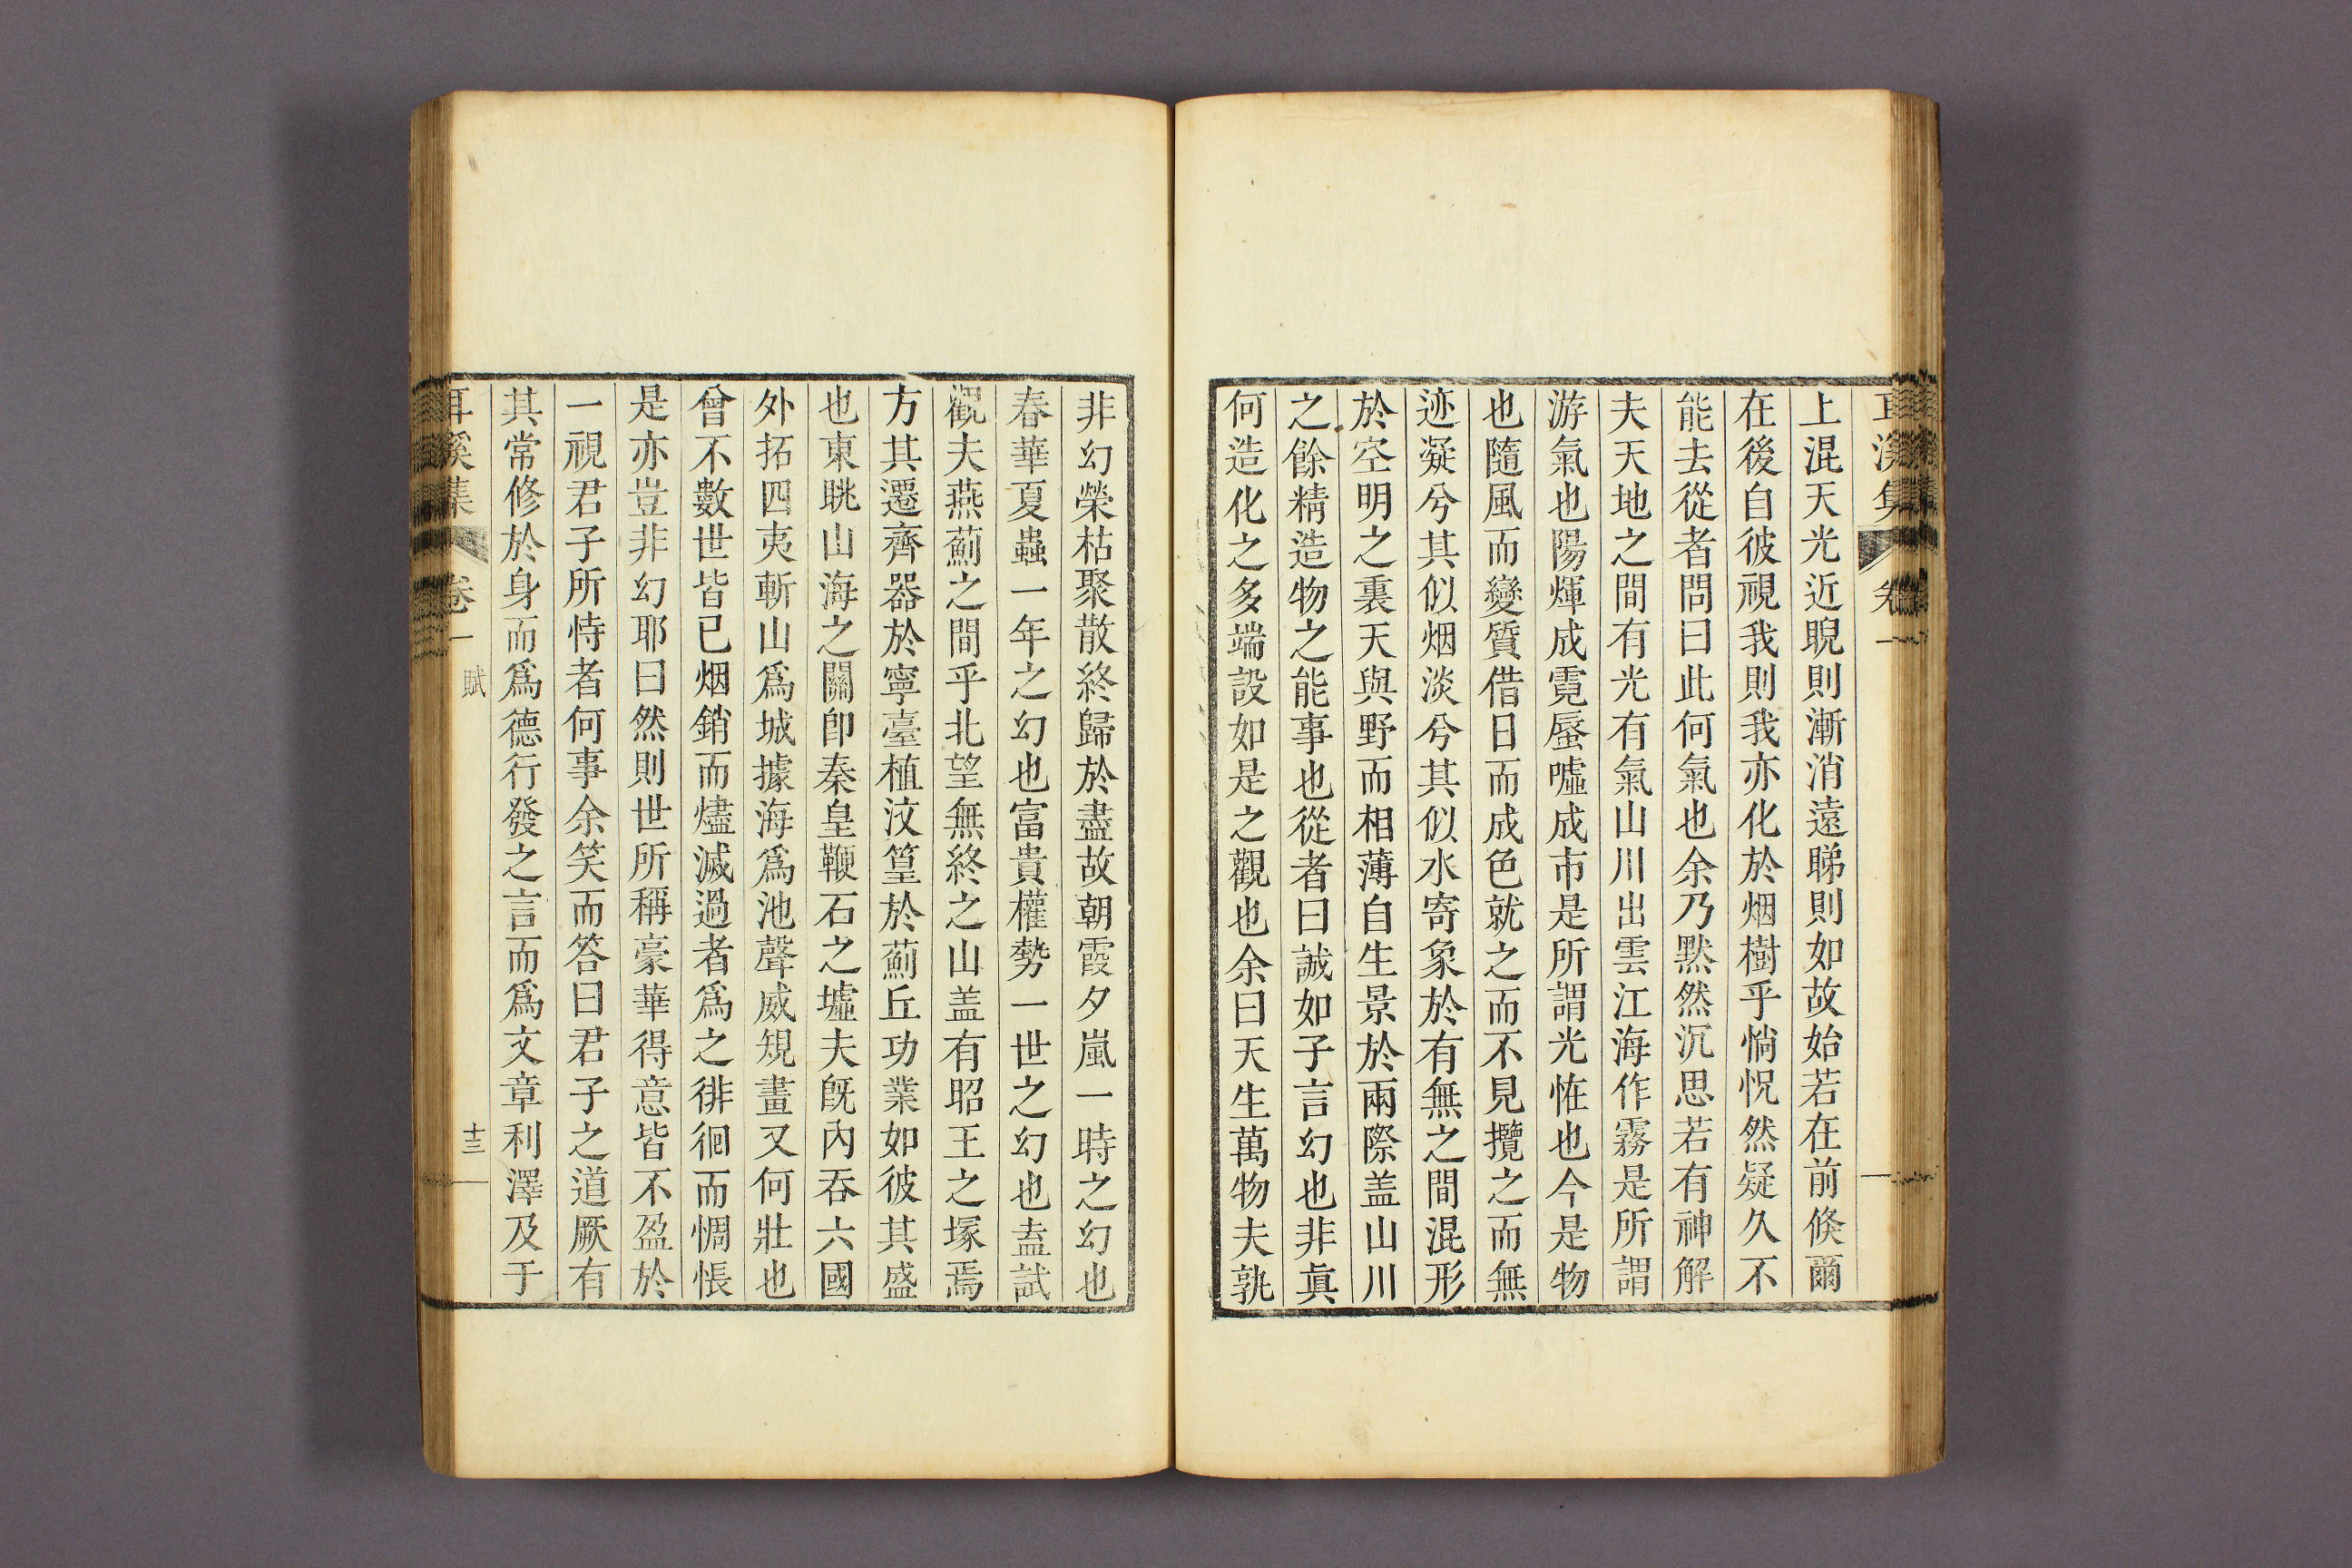 耳溪集 卷一
上混天光近睨則漸消遠睇則如故始若在前倐爾
在後自彼視我則我亦化於烟樹乎惝怳然疑久不
能去從者問曰此何氣也余乃黙然沉思若有神解
夫天地之間有光有氣山川出雲江海作霧是所謂
游氣也陽煇成霓蜃噓成市是所謂光恠也今是物
也隨風而變質借日而成色就之而不見攬之而無
迹凝兮其似烟淡兮其似水寄象於有無之間混形
於空明之裏天與野而相薄自生景於兩際盖山川
之餘精造物之能事也從者曰誠如子言幻也非眞
何造化之多端設如是之觀也余曰天生萬物夫孰
非幻榮枯聚散終歸於盡故朝霞夕嵐一時之幻也
春華夏蟲一年之幻也富貴權勢一世之幻也盍試
觀夫燕薊之間乎北望無終之山盖有昭王之塚焉
方其遷齊器於寧臺植汶篁於薊丘功業如彼其盛
也東眺山海之關卽秦皇鞭石之墟夫旣內吞六國
外拓四夷斬山爲城據海爲池聲威䂓畫又何壯也
曾不數世皆已烟銷而燼滅過者爲之徘徊而惆悵
是亦豈非幻耶曰然則世所稱豪華得意皆不盈於
一視君子所恃者何事余笑而答曰君子之道厥有
其常修於身而爲德行發之言而爲文章利澤及于
耳溪集 卷一 賦 十三